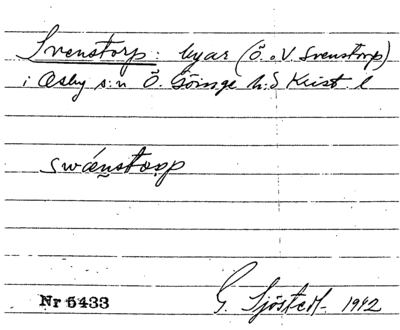 Svenstorp: byar (Ö. o V. Svenstorp)
i Osby s:n Ö. Göinge h:d Krist. l
swǽnstorp
Nr 5433 G. Sjöstedt 1942